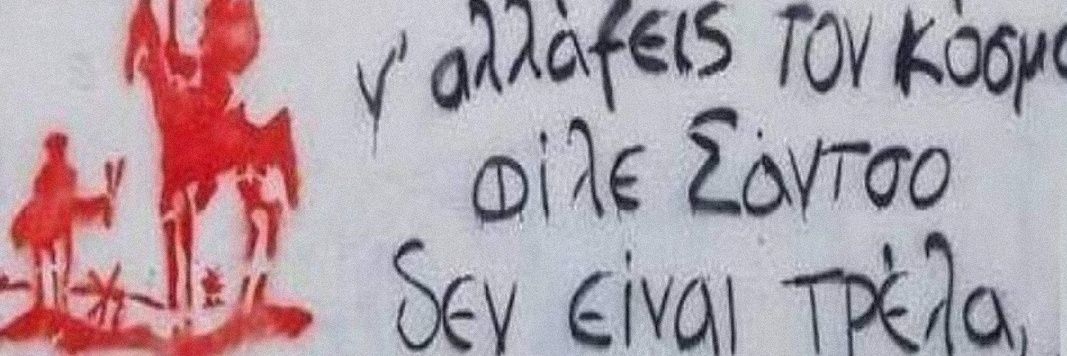 ν' αλλάξεις τον κόσμο
φίλε Σάντσο
δεν είναι τρέλα,